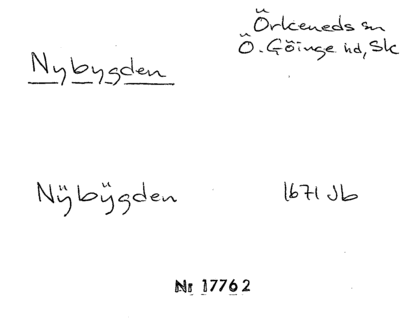 Örkeneds sn
Nybygden Ö. Göinge hd, Sk
Nÿbÿgden 1671 Jb
Nr 17762